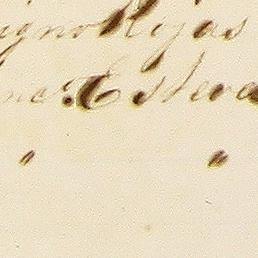 igno Rojas
nac. Esteva